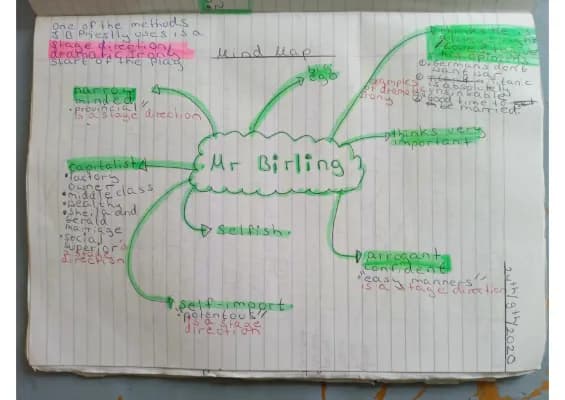 One of the methods
JB Priestly uses is a
stage direction,
dramatic irony
start of the play
Mind Map
big
ego
① Germans don't
want war
② Titanic
is absolutely
unsinkable
③ Good time to
be married.
examples
of dramatic
irony
narrow
minded
• "provincial"
is a stage direction
thinks very
important
Mr Birling
capitalist
• factory
owner
• middle class
• wealthy
• sheila and
Gerald
marriage
• social
superior
a stage
direction
selfish.
arrogant
confident
"easy manners"
is a stage direction
self-import
"potentous"
is a stage
direction
24th/9th/2020